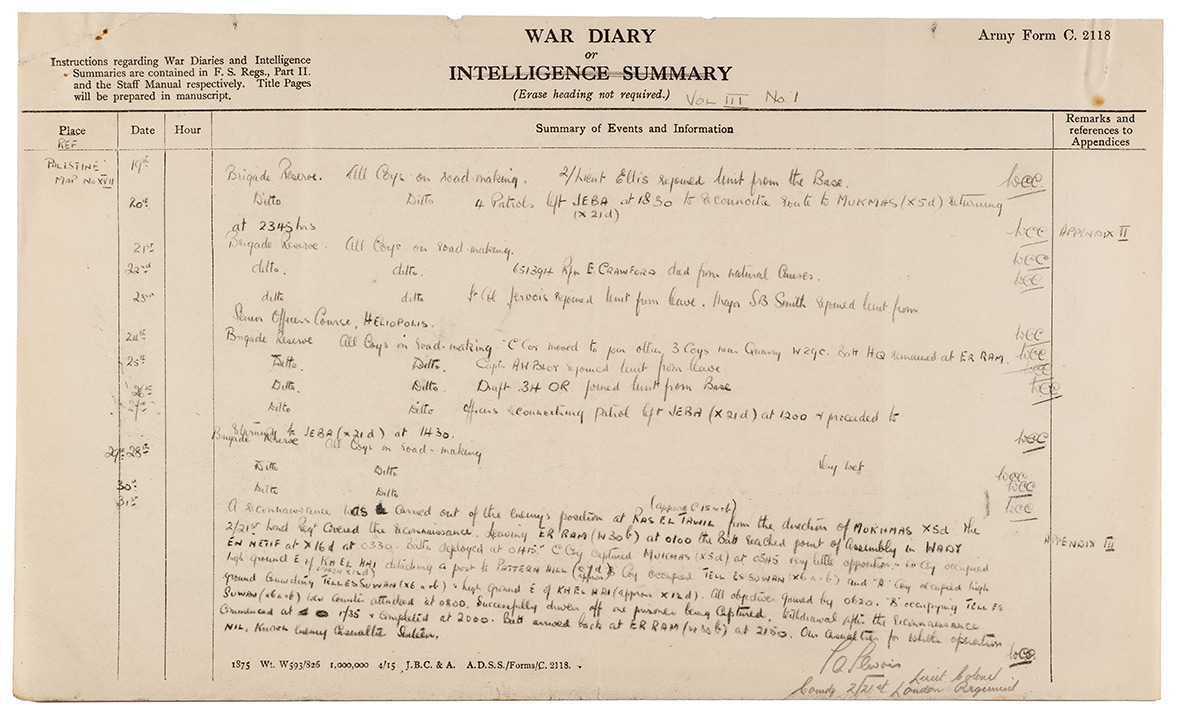 WAR DIARY
or
INTELLIGENCE SUMMARY
(Erase heading not required.) VOL III No 1
Army Form C. 2118
Instructions regarding War Diaries and Intelligence
Summaries are contained in F. S. Regs., Part II.
and the Staff Manual respectively. Title Pages
will be prepared in manuscript.
Place Date Hour Summary of Events and Information Remarks and
references to
Appendices
REF
PALISTINE
MAP No XVII
19th Brigade Reserve. All Coys on road-making. 2/Lieut Ellis rejoined Unit from the Base. WCC
20th Ditto Ditto 4 Patrols left JEBA at 1830 to reconnoitre route to MUKMAS (X5d) returning
(X21d)
at 2345 hrs WCC APPENDIX II
21st Brigade Reserve. All Coys on road-making. WCC
22nd ditto. ditto. 651394 Rfn E. CRAWFORD died from natural causes. WCC
23rd ditto ditto Lt Col Jervois rejoined Unit from leave. Major SB Smith rejoined Unit from
Senior Officers Course, HELIOPOLIS. WCC
24th Brigade Reserve All Coys on road-making "C" Coy moved to join other 3 Coys near Quarry W29c. Batt HQ remained at ER RAM. WCC
25th Ditto. Ditto. Capt. AH rejoined Unit from leave. WCC
26th Ditto. Ditto. Draft 34 OR joined Unit from Base WCC
27th Ditto Ditto Officers reconnoitring patrol left JEBA (X21d) at 1200 & proceeded to
returning to JEBA (X21d) at 1430. WCC
28th Brigade Reserve All Coys on road-making
29th Ditto Ditto Very wet WCC
30th Ditto Ditto WCC
31st WCC
A reconnaissance was carried out of the enemy's position at RAS EL TAWIL (approx C15a+b) from the direction of MUKHMAS X5d The
2/21st Lond Regt covered the reconnaissance. Leaving ER RAM (W30b) at 0100 the Batt reached point of assembly in WADY APPENDIX III
EN NETIF at X16d at 0330. Battn deployed at 0415. "C" Coy captured MUKMAS (X5d) at 0545 very little opposition. Coy occupied
high ground E of KH EL HAI detaching a post to PATTERN HILL Coy occupied TELL ES SUWAN (X6a+b) and "A" Coy occupied high
ground TELL ES SUWAN (X6a+b) & high ground E of KH EL HAI (approx X12d). All objectives gained by 0620. "B" occupying TELL ES
SUWAN (X6a+b) counter attacked at 0800. Successfully driven off one prisoner being captured. Withdrawal after the reconnaissance
commenced at 1735 & completed at 2000. Batt arrived back at ER RAM (W30b) at 2150. Our casualties for whole operation
NIL. Known enemy casualties sixteen. WCC
1875 Wt. W593/826 1,000,000 4/15 J.B.C. & A. A.D.S.S./Forms/C. 2118.
Lieut Colonel
Comdg 2/21st London Regiment